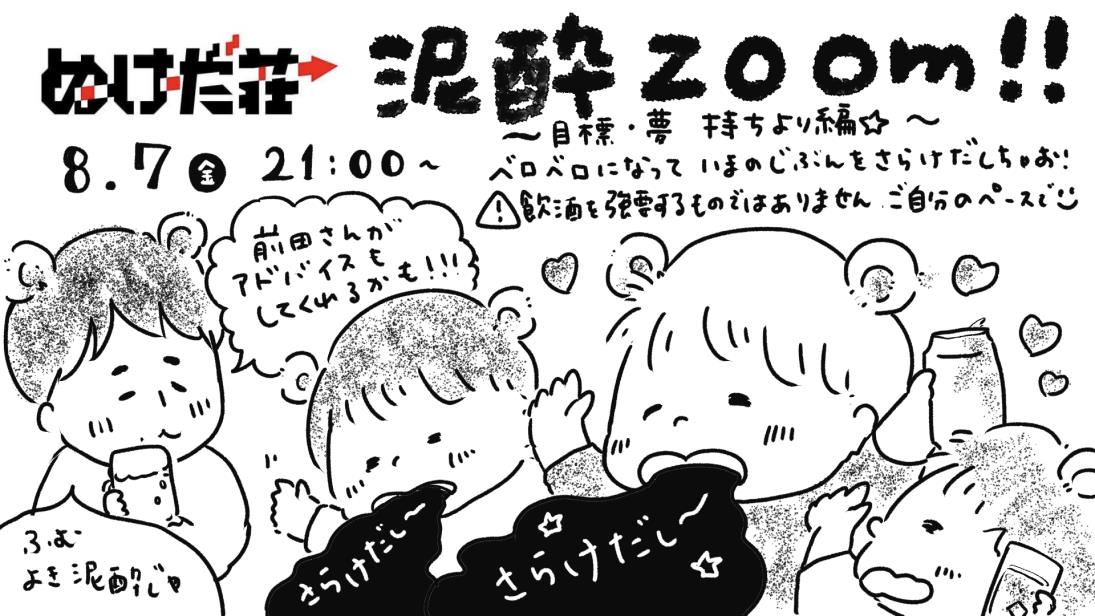 ぬけだ荘
泥酔zoom!!
〜目標・夢 持ちより編☆〜
8.7 金 21:00〜
ベロベロになって いまのじぶんをさらけだしちゃお!
飲酒を強要するものではありません ご自分のペースで
前田さんが
アドバイスも
してくれるかも!!!
さらけだし〜
さらけだし〜
ふむ
よき泥酔じゃ